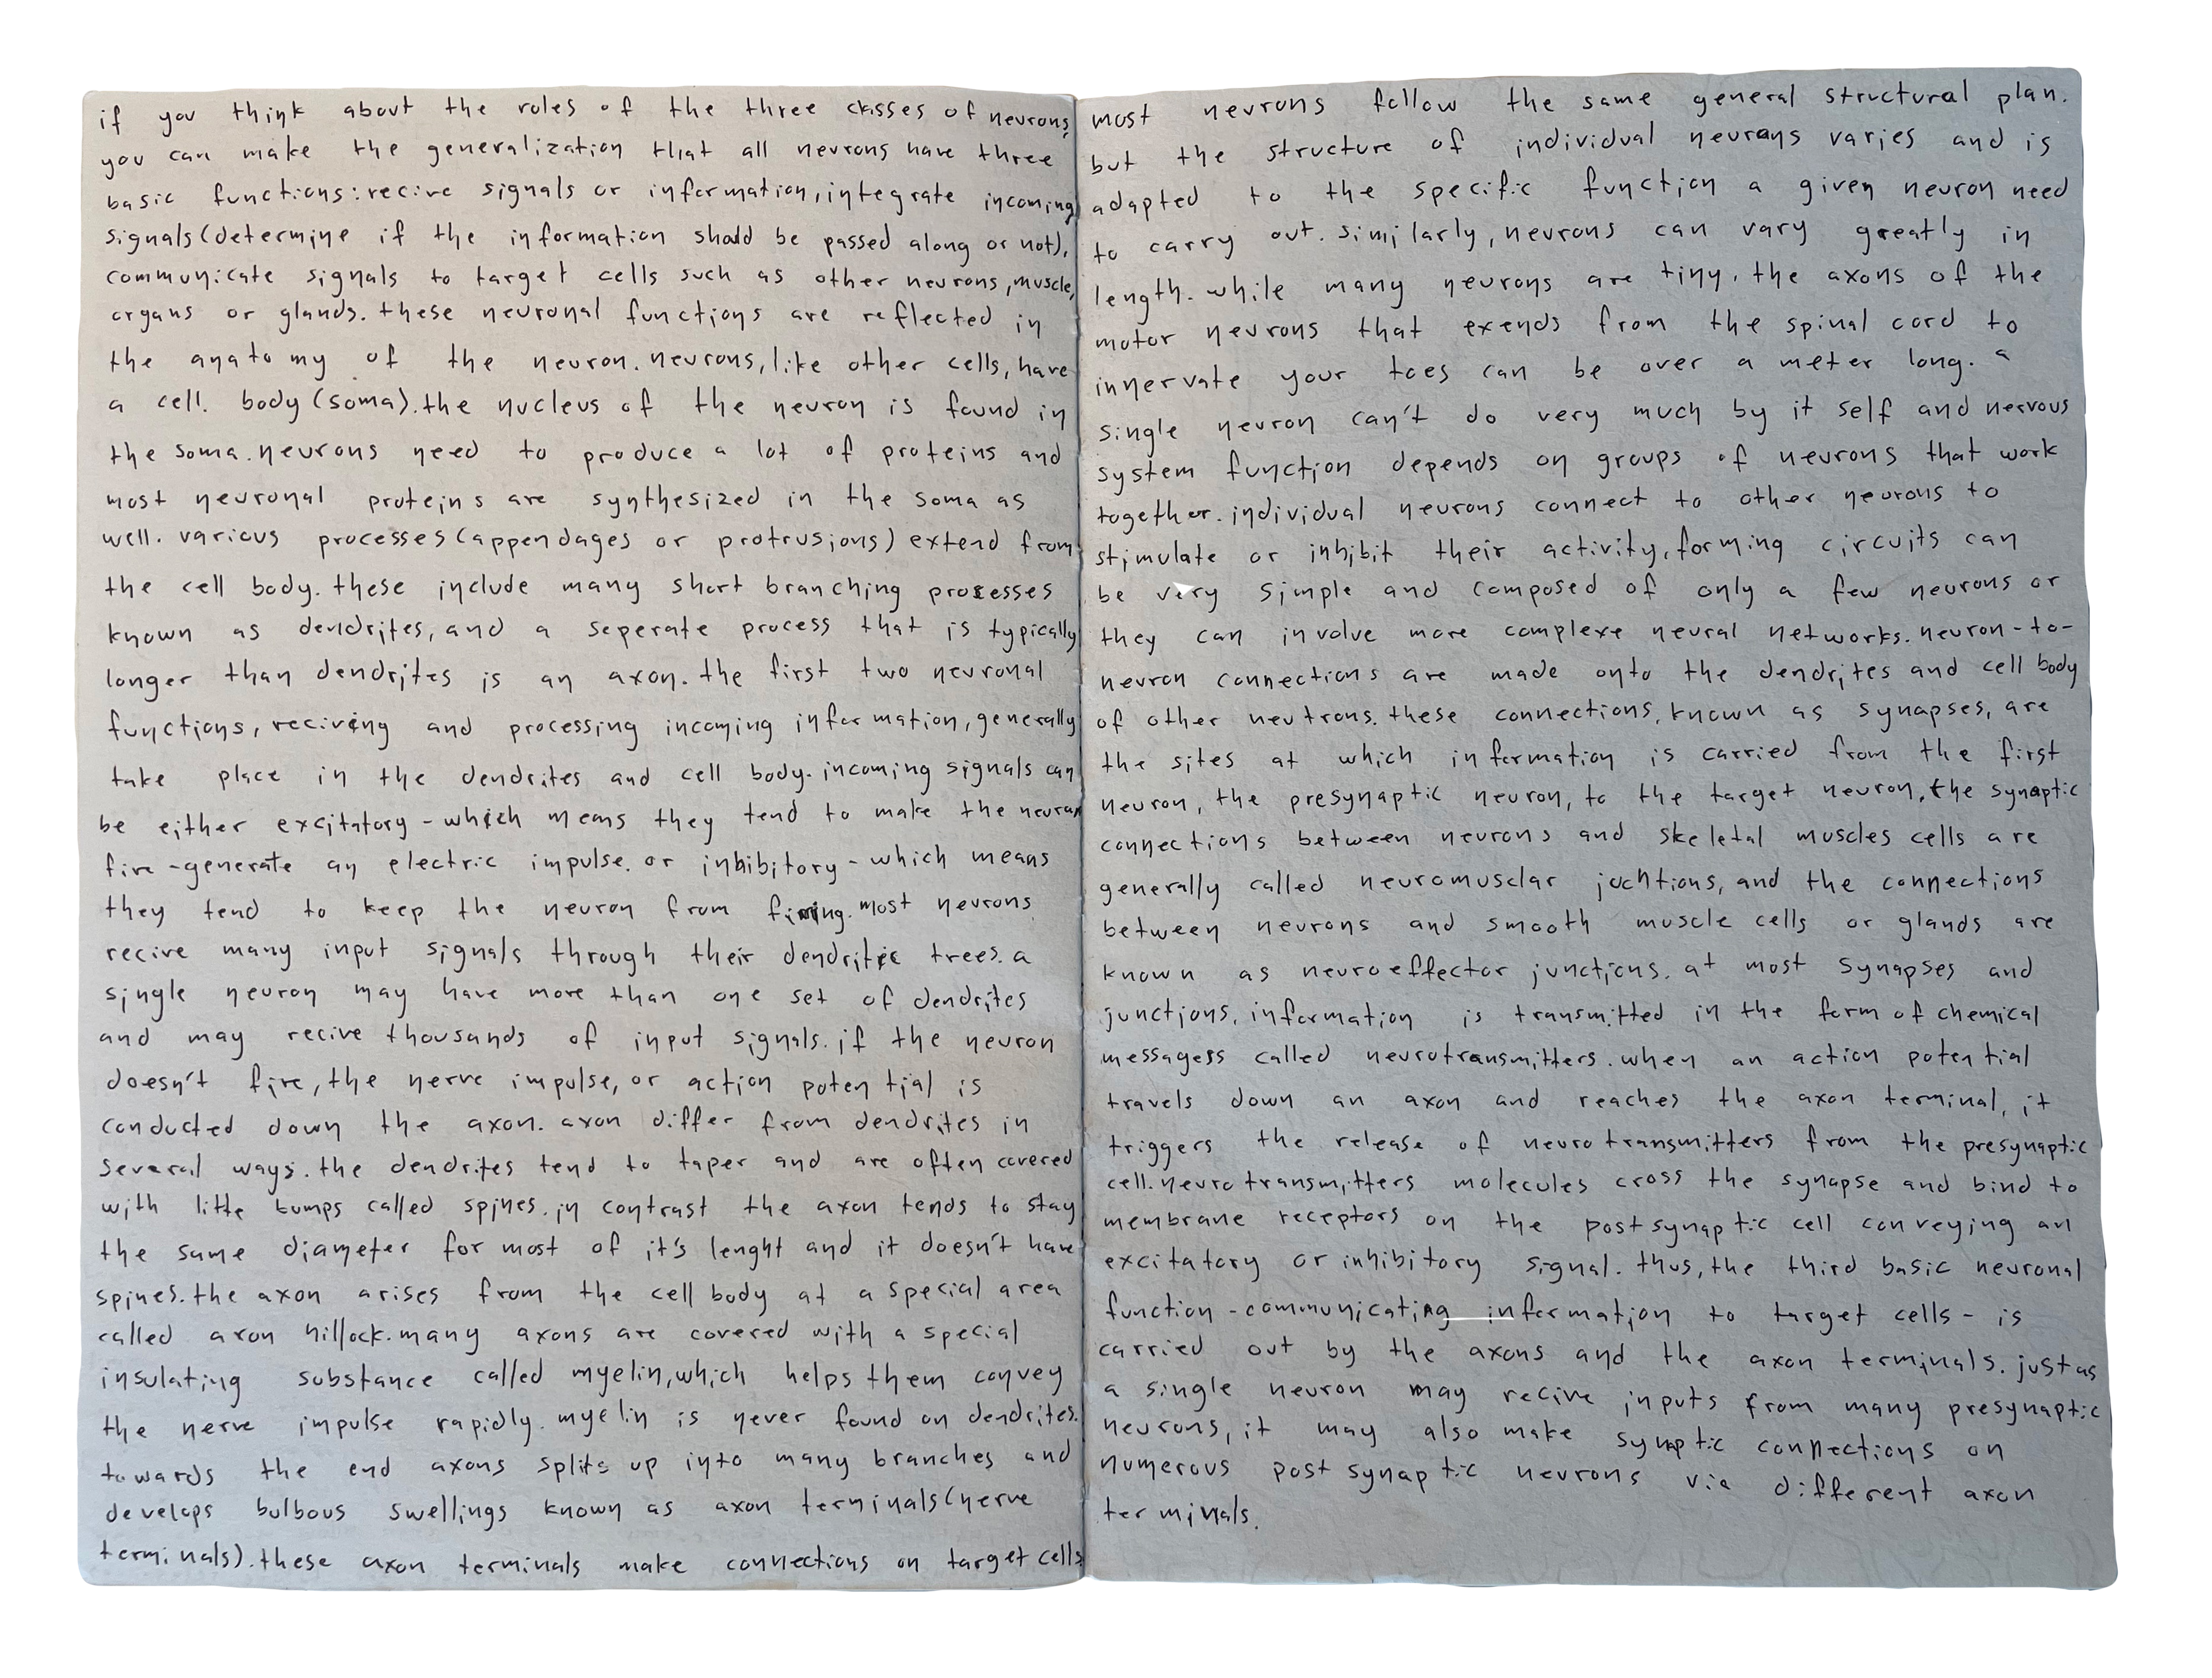 if you think about the roles of the three classes of neurons,
you can make the generalization that all neurons have three
basic functions: recive signals or information, integrate incoming
signals (determine if the information should be passed along or not),
communicate signals to target cells such as other neurons, muscle,
organs or glands. these neuronal functions are reflected in
the anatomy of the neuron. neurons, like other cells, have
a cell. body (soma). the nucleus of the neuron is found in
the soma. neurons need to produce a lot of proteins and
most neuronal proteins are synthesized in the soma as
well. various processes (appendages or protrusions) extend from
the cell body. these include many short branching processes
known as dendrites, and a seperate process that is typically
longer than dendrites is an axon. the first two neuronal
functions, reciving and processing incoming information, generally
take place in the dendrites and cell body. incoming signals can
be either excitatory - which means they tend to make the neuron
fire - generate an electric impulse. or inhibitory - which means
they tend to keep the neuron from firing. most neurons
recive many input signals through their dendritic trees. a
single neuron may have more than one set of dendrites
and may recive thousands of input signals. if the neuron
doesn't fire, the nerve impulse, or action potential is
conducted down the axon. axon differ from dendrites in
several ways. the dendrites tend to taper and are often covered
with litte bumps called spines. in contrast the axon tends to stay
the same diameter for most of it's lenght and it doesn't have
spines. the axon arises from the cell body at a special area
called axon hillock. many axons are covered with a special
insulating substance called myelin, which helps them convey
the nerve impulse rapidly. myelin is never found on dendrites.
towards the end axons splits up into many branches and
develops bulbous swellings known as axon terminals (nerve
terminals). these axon terminals make connections on target cells.
most neurons follow the same general structural plan.
but the structure of individual neurons varies and is
adapted to the specific function a given neuron need
to carry out. similarly, neurons can vary greatly in
length. while many neurons are tiny, the axons of the
motor neurons that exends from the spinal cord to
innervate your toes can be over a meter long. a
single neuron can't do very much by it self and nervous
system function depends on groups of neurons that work
together. individual neurons connect to other neurons to
stimulate or inhibit their activity, forming circuits can
be very simple and composed of only a few neurons or
they can involve more complexe neural networks. neuron-to-
neuron connections are made onto the dendrites and cell body
of other neutrons. these connections, known as synapses, are
the sites at which information is carried from the first
neuron, the presynaptic neuron, to the target neuron, the synaptic
connections between neurons and skeletal muscles cells are
generally called neuromusclar juchtions, and the connections
between neurons and smooth muscle cells or glands are
known as neuroeffector junctions. at most synapses and
junctions, information is transmitted in the form of chemical
messagess called neurotransmitters. when an action potential
travels down an axon and reaches the axon terminal, it
triggers the release of neurotransmitters from the presynaptic
cell. neurotransmitters molecules cross the synapse and bind to
membrane receptors on the postsynaptic cell conveying an
excitatory or inhibitory signal. thus, the third basic neuronal
function - communicating information to target cells - is
carried out by the axons and the axon terminals. just as
a single neuron may recive inputs from many presynaptic
neurons, it may also make synptic connections on
numerous postsynaptic neurons via different axon
terminals.